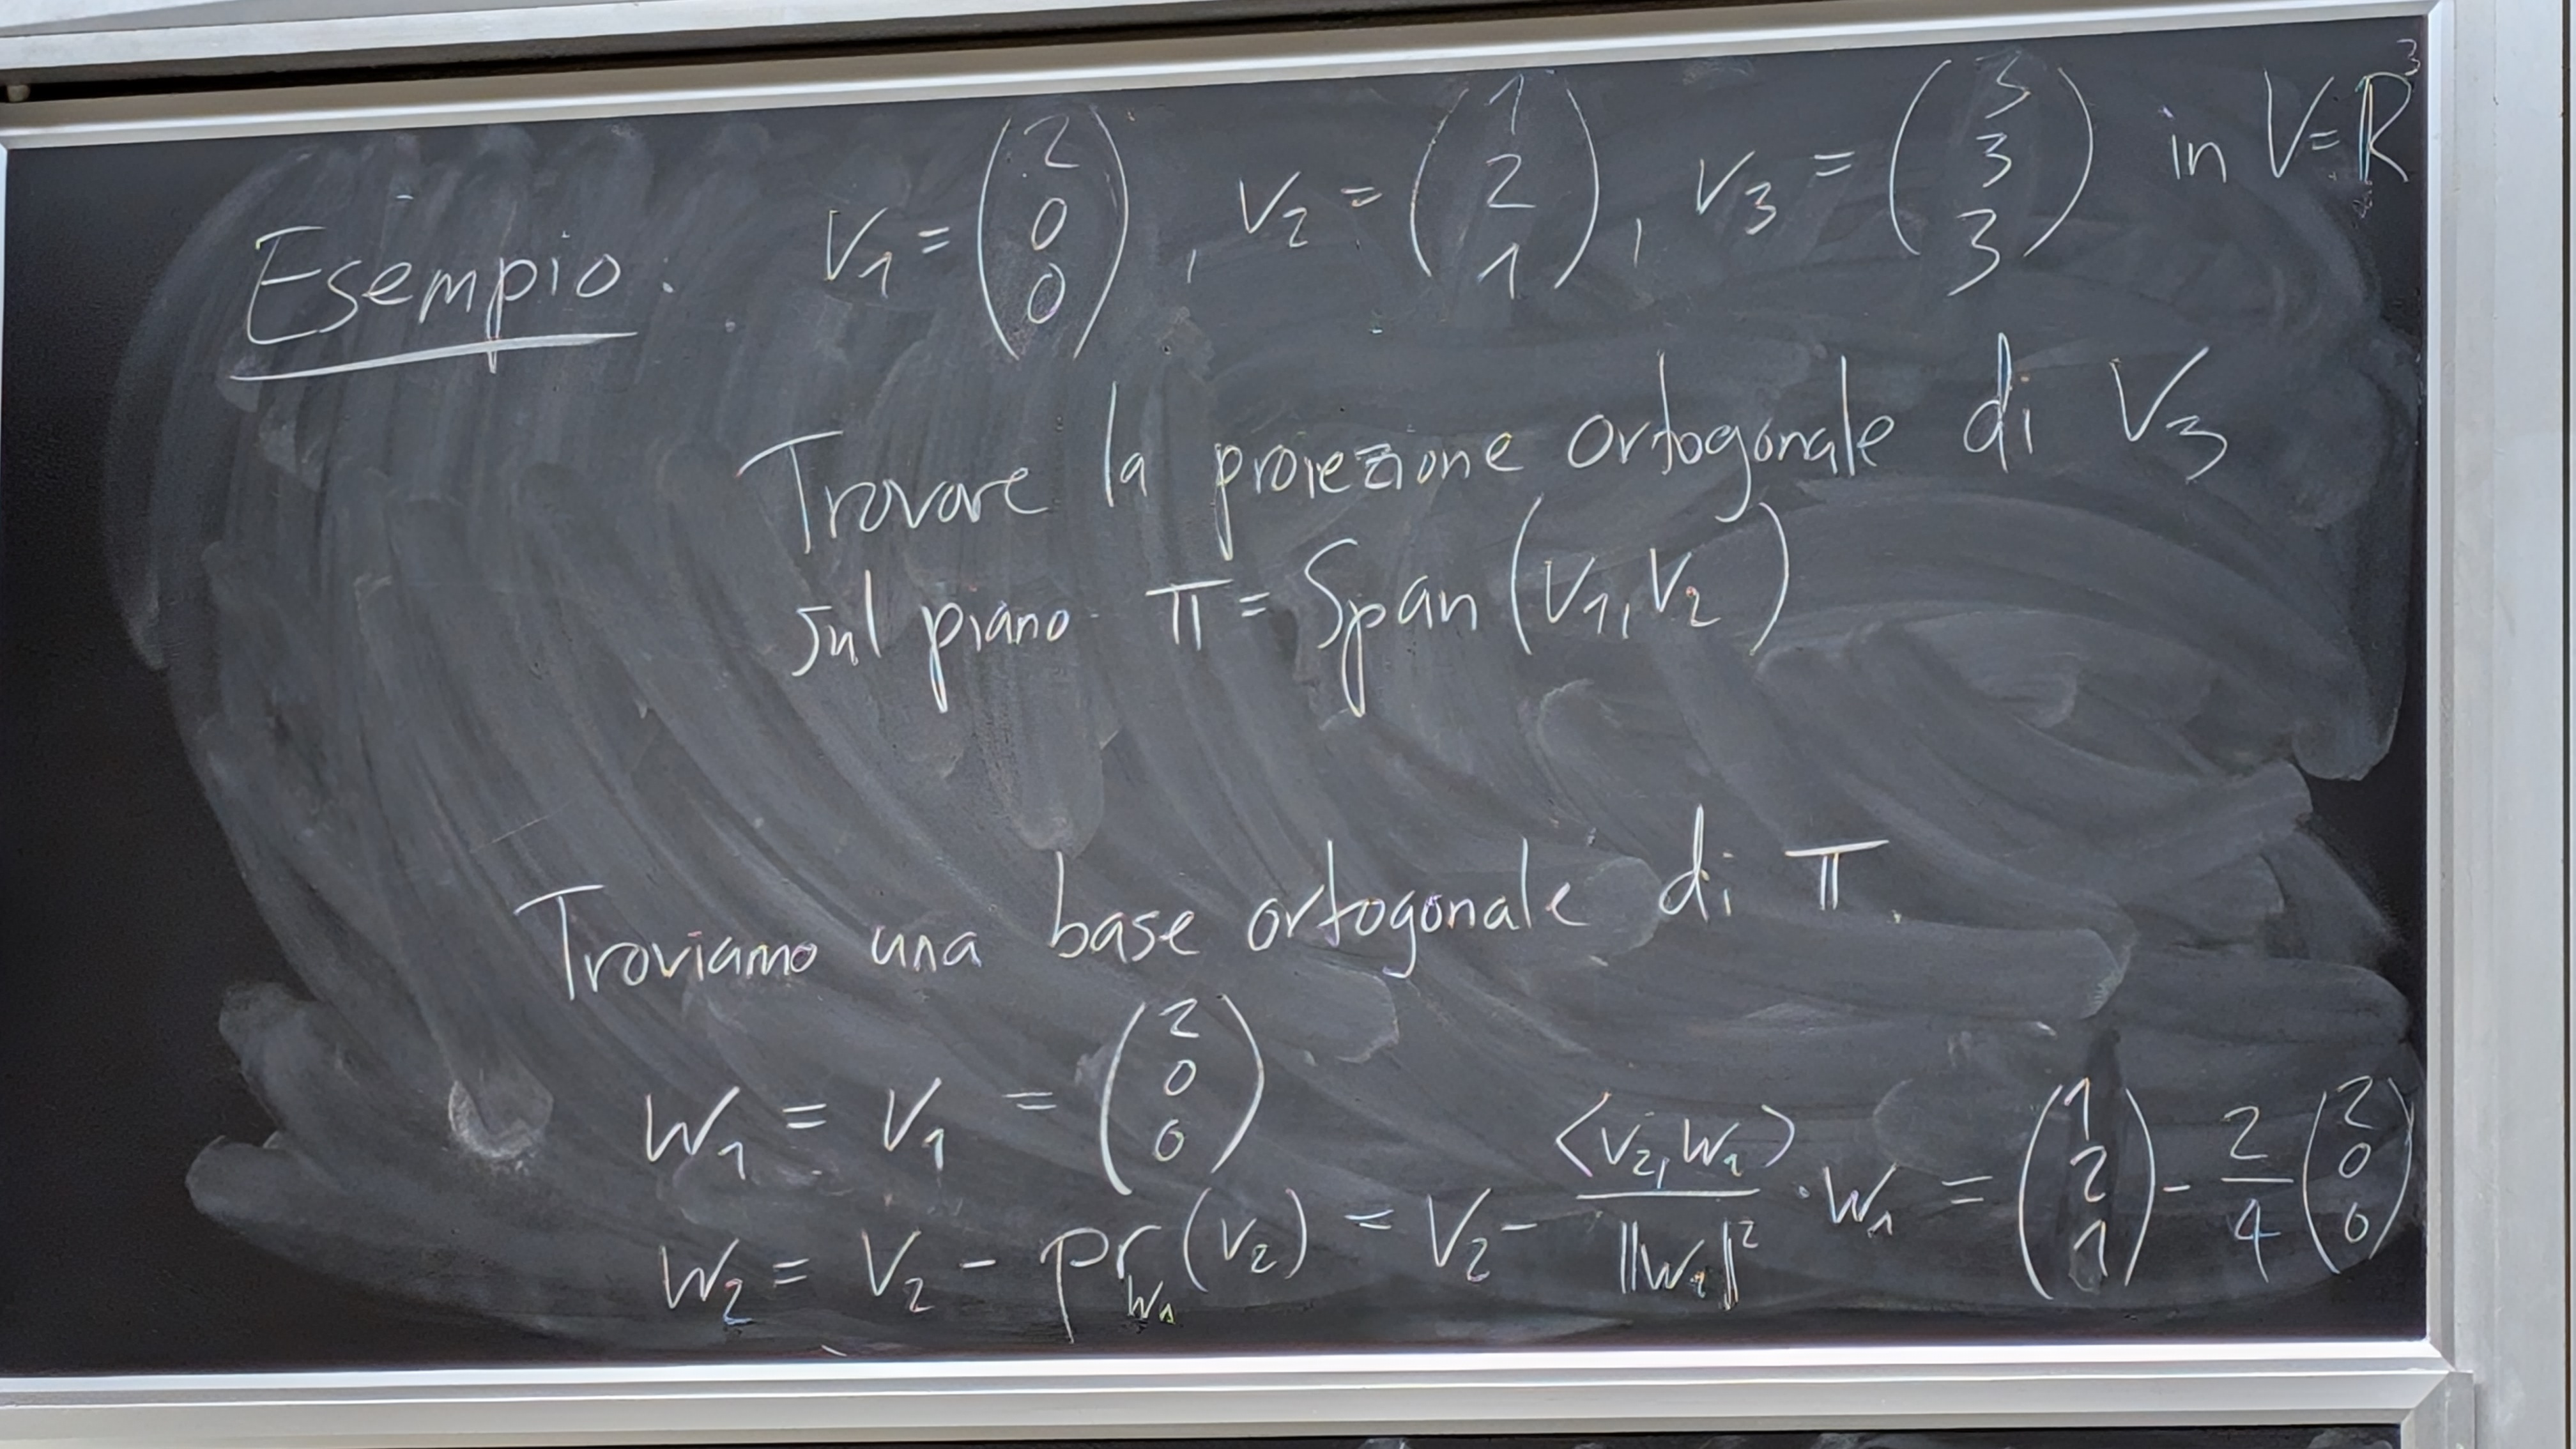 Esempio. v₁ = (2 0 0), v₂ = (1 2 1), v₃ = (3 3 3) in V = ℝ³
Trovare la proiezione ortogonale di v₃
sul piano π = Span(v₁, v₂)
Troviamo una base ortogonale di π.
w₁ = v₁ = (2 0 0)
w₂ = v₂ - pr_w₁(v₂) = v₂ - <v₂, w₁>/||w₁||² · w₁ = (1 2 1) - 2/4 (2 0 0)